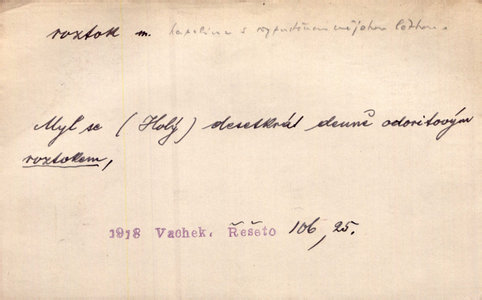 roztok m. kapalina s rozpuštěnou nějakou látkou.
Myl se (Holý) desetkrát denně odoritovým
roztokem,
1918 Vachek. Řešeto 106, 25.